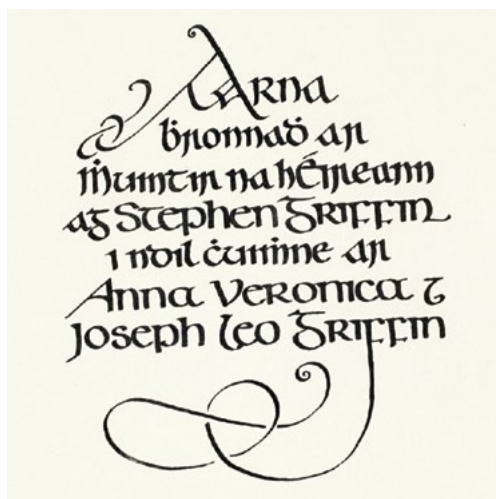 Arna
ḃronnaḋ ar
Ṁuintir na hÉireann
ag Stephen Griffin
i ndil ċuiṁne ar
Anna Veronica ⁊
Joseph Leo Griffin